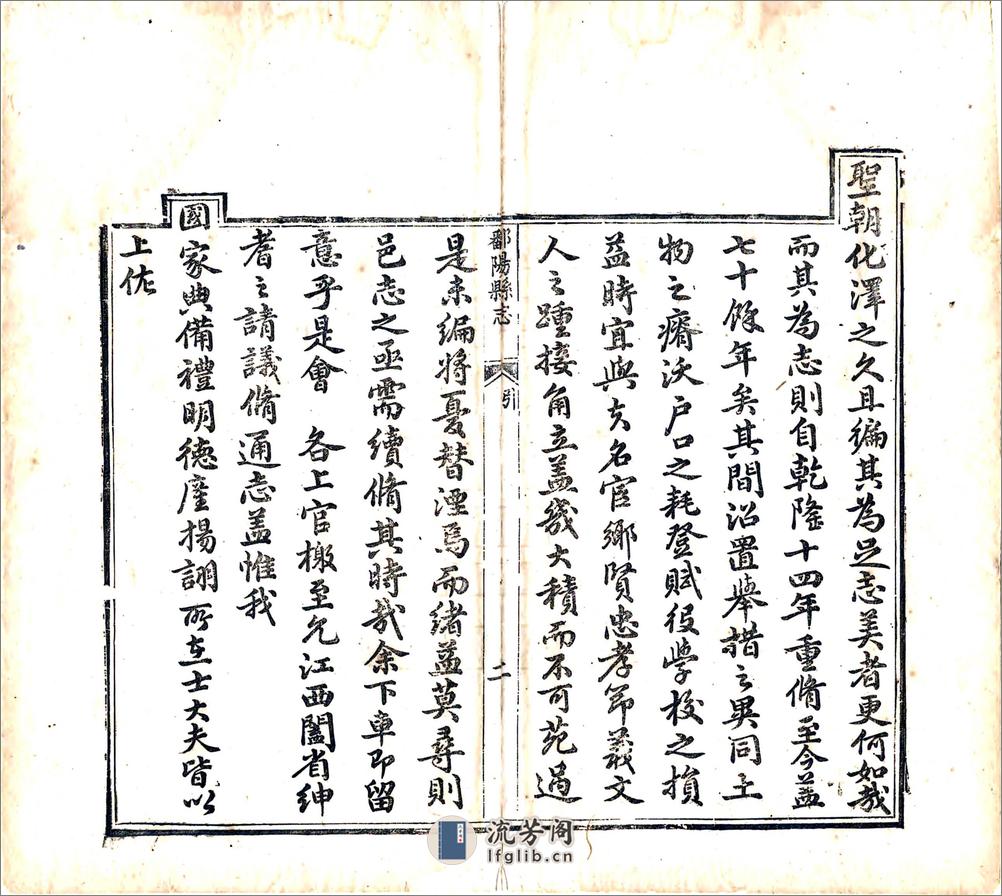 聖朝化澤之久且徧其為足志美者更何如哉
而其為志則自乾隆十四年重脩至今蓋
七十餘年矣其間沿置舉措之異同土
物之瘠沃户口之耗登賦役學校之損
益時宜與夫名宦鄉賢忠孝節義文
人之踵接角立蓋幾大積而不可苑過
鄱陽縣志
引
二
是未編將憂替湮焉而緒益莫尋則
邑志之亟需續脩其時哉余下車即留
意乎是會 各上官檄至允江西闔省紳
耆之請議脩通志蓋惟我
國家典備禮明德産揚詡所在士大夫皆以
上佐
流芳阁
lfglib.cn